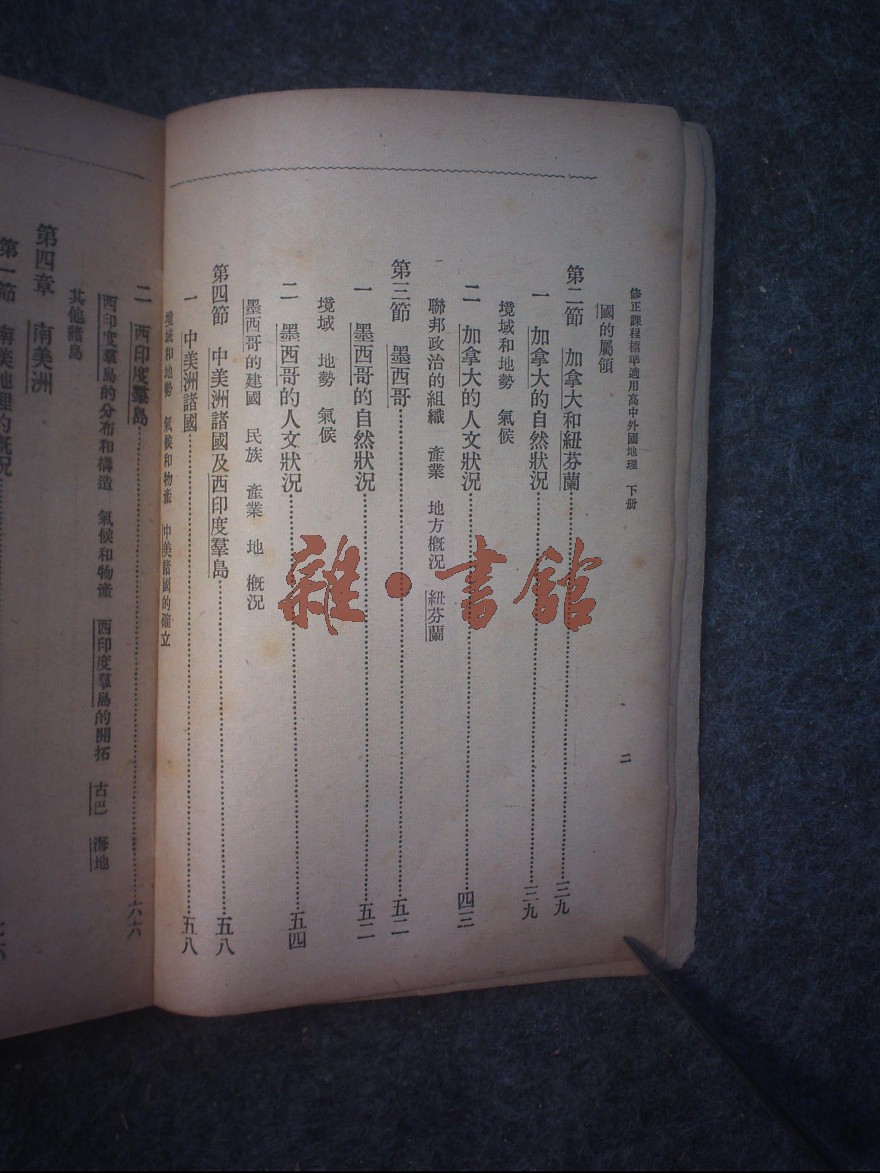 修正課程標準適用高中外國地理 下册
二
國的屬領
第二節 加拿大和紐芬蘭……三九
一 加拿大的自然狀況……三九
境域和地勢 氣候
二 加拿大的人文狀況……四三
聯邦政治的組織 產業 地方槪況 紐芬蘭
第三節 墨西哥……五二
一 墨西哥的自然狀況……五二
境域 地勢 氣候
二 墨西哥的人文狀況……五四
墨西哥的建國 民族 產業 地 槪況
第四節 中美洲諸國及西印度羣島……五八
一 中美洲諸國……五八
境域和地勢 氣候和物產 中美諸國的確立
二 西印度羣島……六六
西印度羣島的分布和構造 氣候和物產 西印度羣島的開拓 古巴 海地
其他諸島
第四章 南美洲
第一節 南美地理的槪況
雜·書館